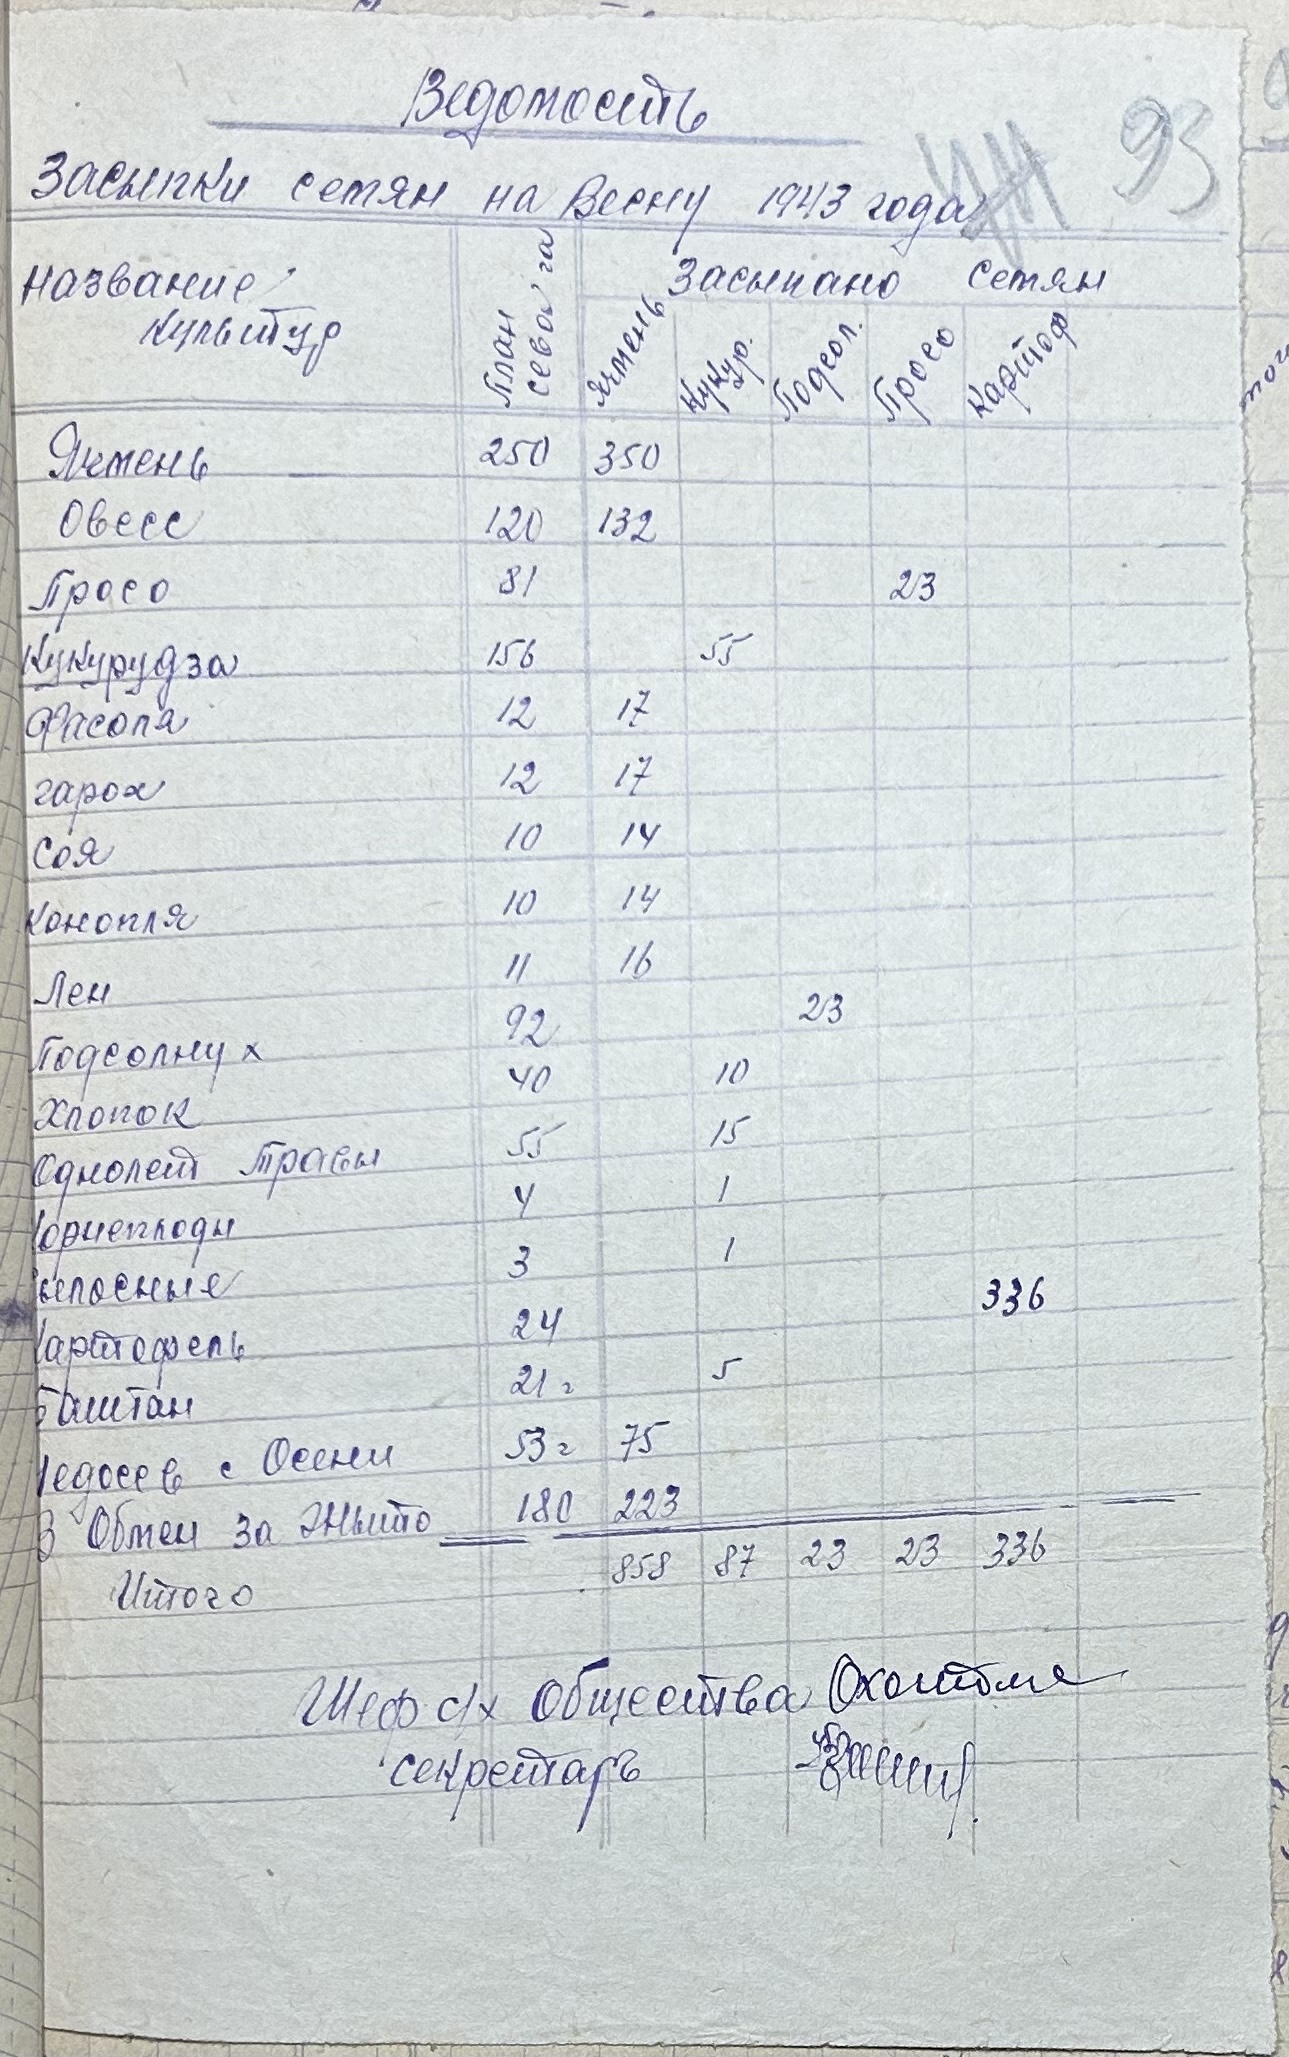 93
Ведомость
Засыпки семян на Весну 1943 года
Название культур План сева га Засыпано семян
Ячмень Кукур. Подсол. Просо Картоф
Ячмень 250 350
Овесс 120 132
Просо 81 23
Кукурудза 156 55
Фасоля 12 17
гарох 12 17
Соя 10 14
Конопля 10 14
Лен 11 16
Подсолнух 92 23
Хлопок 40 10
Однолет травы 55 15
Корнеплоды 4 1
3 1
Картофель 24 336
Баштан 21 г 5
Недосев с Осени 53 г 75
В Обмен за Жыто 180 223
Итого 858 87 23 23 336
Шеф с/х Общества
секретарь